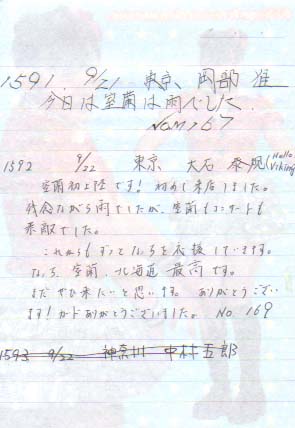 1591. 9/21 東京、岡部 准
今日は室蘭は雨でした。
No.M167
1592 9/22 東京 大石 (Hello! Viking
室蘭初上陸です! 初めて来店しました。
残念ながら雨でしたが、室蘭もコンサートも
素敵でした。
これからもずっとなっちを応援しています。
なっち、室蘭、北海道 最高です。
またぜひ来たいと思います。 ありがとうござい
ます! カードありがとうございました。 No 169
1593 9/22 神奈川 中村五郎